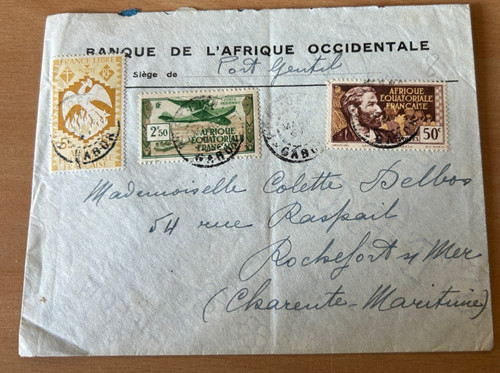 BANQUE DE L'AFRIQUE OCCIDENTALE
Siège de Port Gentil
FRANCE LIBRE
RF
2f50
AFRIQUE
ÉQUATORIALE
FRANÇAISE
GABON
AFRIQUE
ÉQUATORIALE
FRANÇAISE
50c
GABON
GABON
Mademoiselle Colette Delbos
54 rue Raspail
Rochefort s/ Mer
(Charente-Maritime)